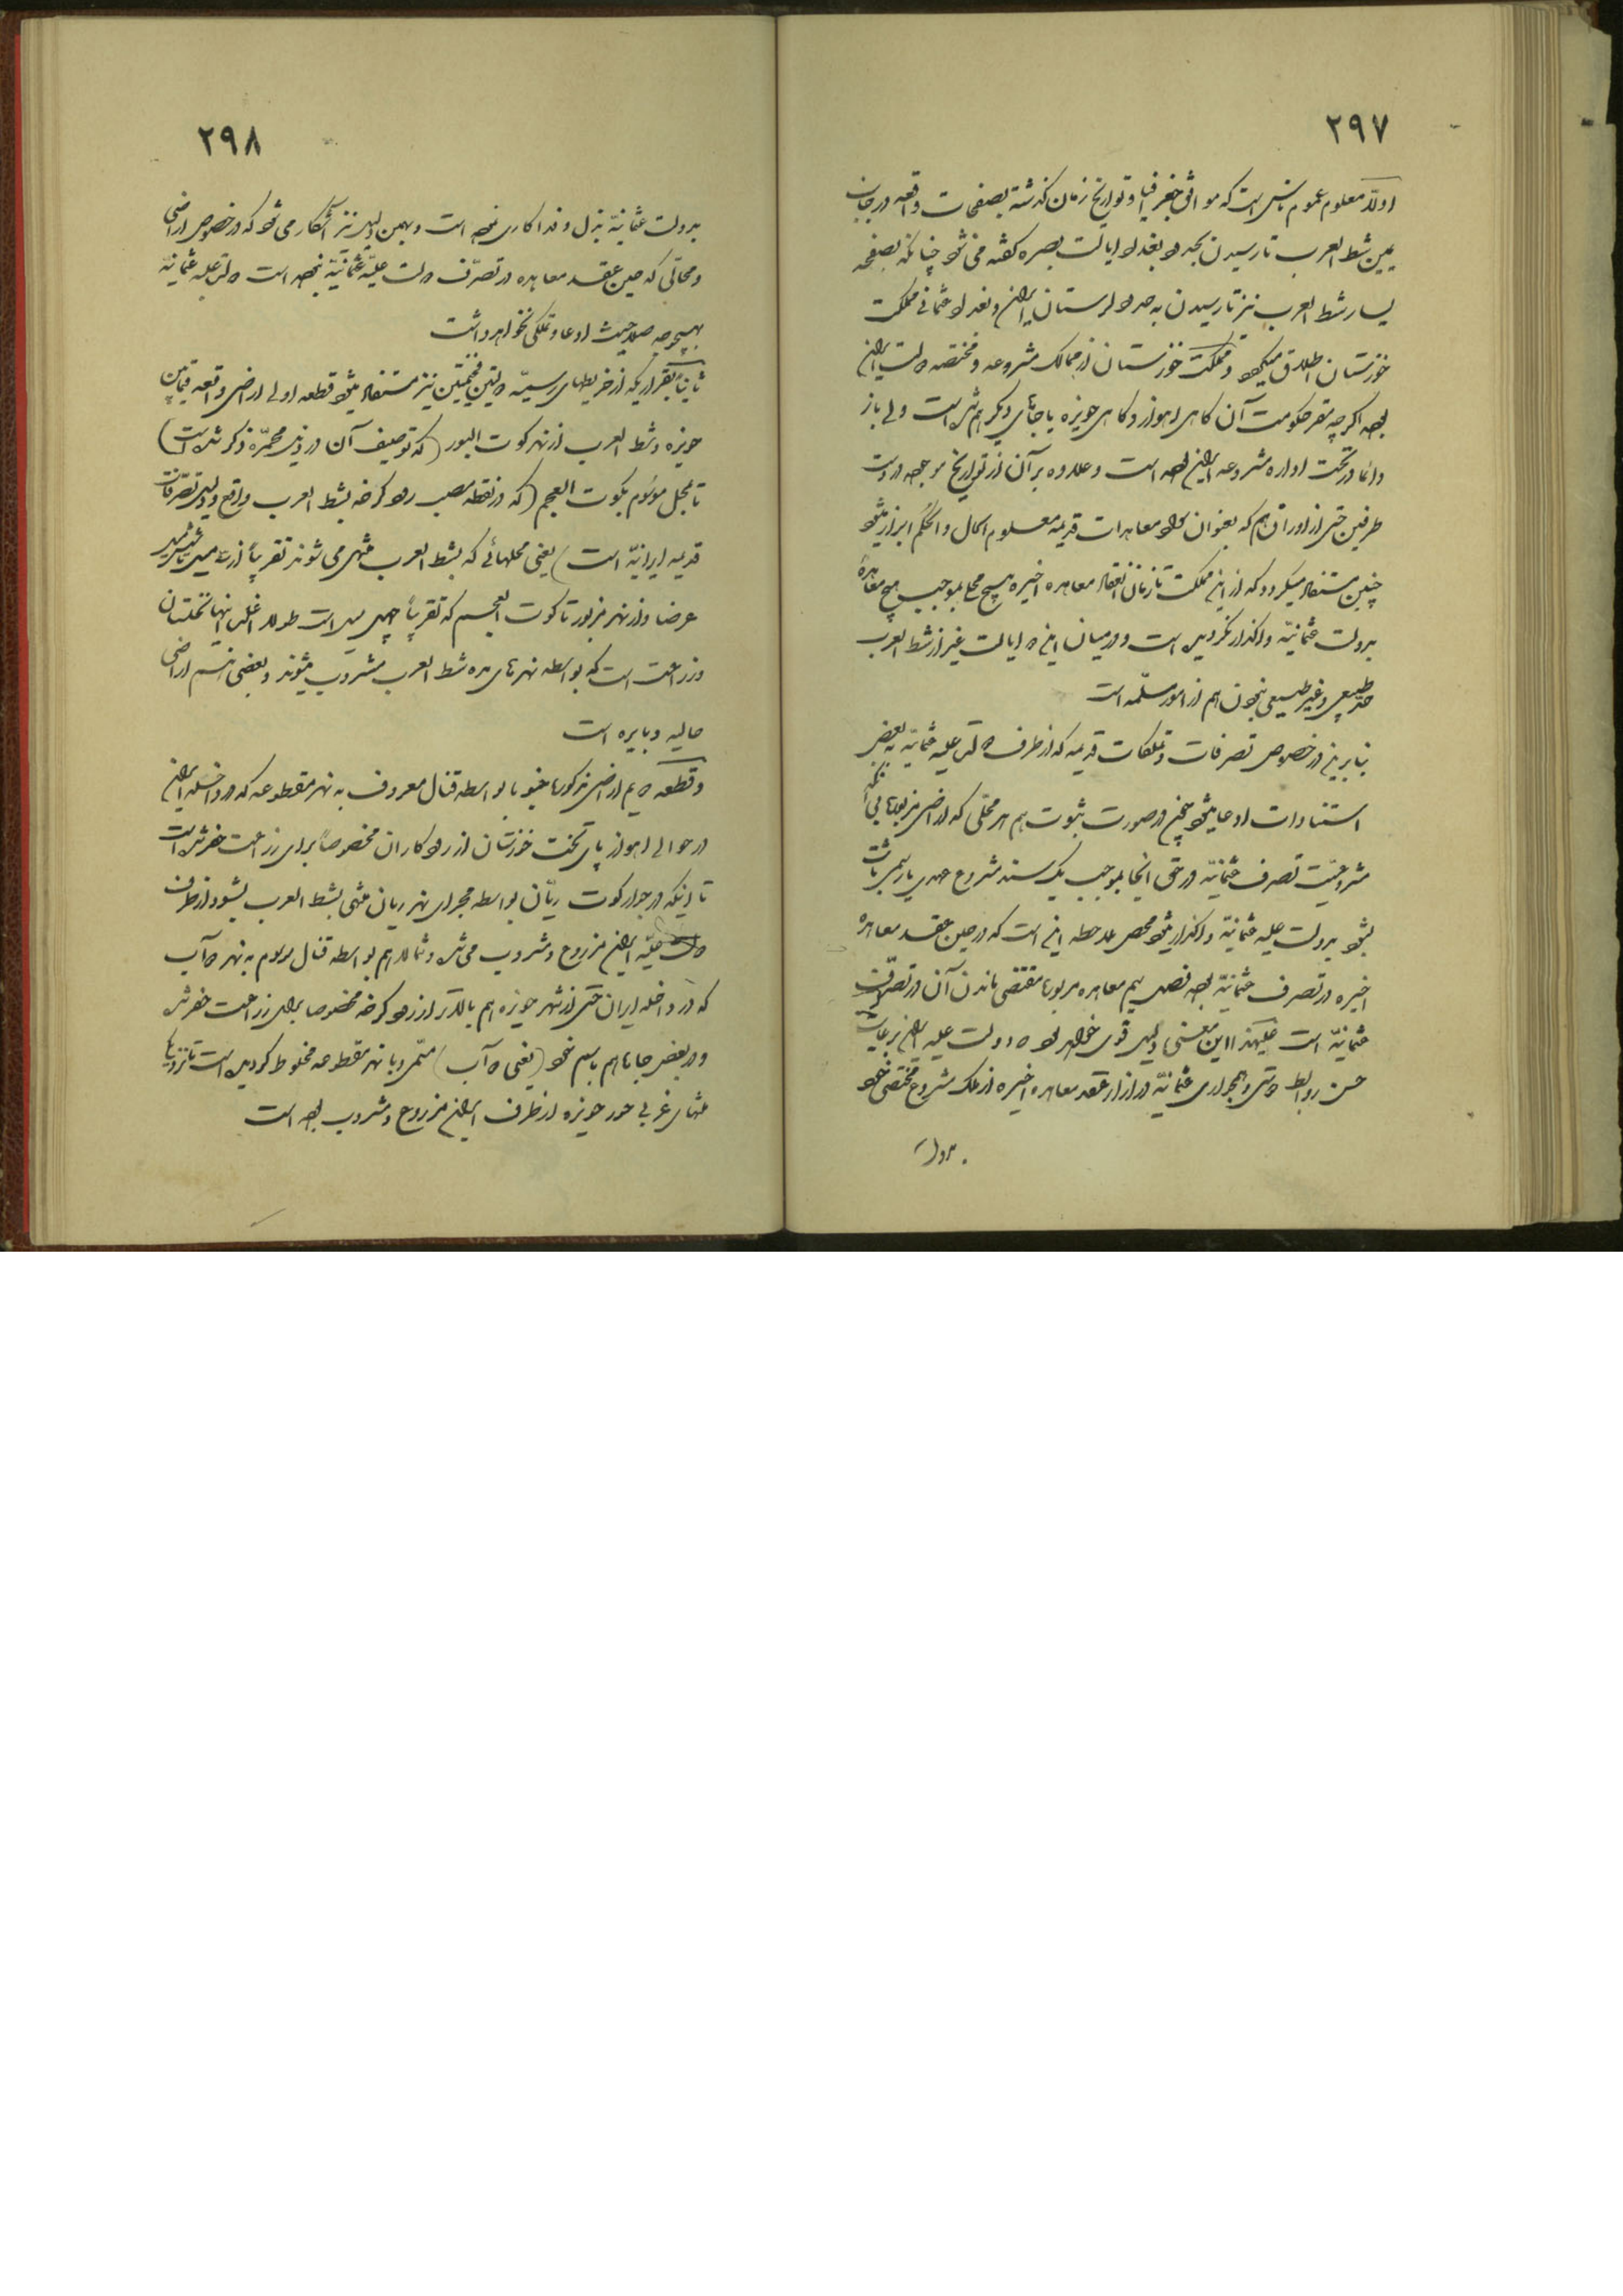 ۲۹۷
اولا معلوم عموم ناس است که موافق جغرافیا و تواریخ زمان گذشته بصفحات واقعه در جانب
یمین شط العرب تا رسیدن بحدود بغداد ایالت بصره گفته می شود چنانکه بصفحه
یسار شط العرب نیز تا رسیدن به حدود لرستان ایران و بغداد عثمانی مملکت
خوزستان اطلاق میکنند و مملکت خوزستان از ممالک مشروعه و مختصه دولت ایران
بوده اگرچه مقر حکومت آن گاهی اهواز و گاهی حویزه یا جاهای دیگر هم شده است ولی باز
دائما در تحت اداره مشروعه ایران بوده است و علاوه بر آن از تواریخ موجوده در دست
طرفین حتی از اوراق هم که بعنوان سواد معاهدات قدیمه معلوم الحال و الحکم ابراز میشود
چنین مستفاد میگردد که از این مملکت تا زمان انعقاد معاهده اخیره هیچ محلی بموجب هیچ معاهدهٔ
بدولت عثمانیه واگذار نگردیده است و در میان این دو ایالت غیر از شط العرب
حد طبیعی و غیر طبیعی نبودن هم از امور مسلمه است
بنابرین در خصوص تصرفات و تملکات قدیمه که از طرف دولت علیه عثمانیه به بعض
استنادات ادعا میشود همچنین در صورت ثبوت هم هر محلی که اراضی مزبوره بی آنکه
مشروعیت تصرف عثمانیه در حق آنجا بموجب یک سند مشروع عهدی یا رسمی ثابت
بشود بدولت علیه عثمانیه واگذار میشود محض ملاحظه این است که در حین عقد معاهده
اخیره در تصرف عثمانیه بوده فصل دویم معاهده مزبوره مقتضی ماندن آن در تصرف دولت
عثمانیه است علیهذا این معنی دلیل قوی خواهد بود که دولت علیه ایران برعایت
حسن روابط دوستی و همجواری عثمانیه در ازاء عقد معاهده اخیره از ملک مشروع مختص خود
بدولت
۲۹۸
بدولت عثمانیه بذل و فداکاری نموده است و بهمین دلیل نیز آشکار می شود که در خصوص اراضی
و محالی که حین عقد معاهده در تصرف دولت علیه عثمانیه نبوده است دولت علیه عثمانیه
بهیچوجه صلاحیت ادعا و تملکی نخواهد داشت
ثانیا بقراریکه از خریطهای رسمیه دولتین فخیمتین نیز مستفاد میشود قطعه اولی اراضی واقعه فیمابین
حویزه و شط العرب از نهر کوت البور (که توصیف آن در ذیل محمره ذکر شده است)
تا محل موسوم بکوت العجم (که در نقطه مصب رود کرخه بشط العرب واقع و دلیل تصرفات
قدیمه ایرانیه است) یعنی محلهائی که بشط العرب منتهی می شوند تقریبا از سه میل تا شش میل
عرضا و از نهر مزبور تا کوت العجم که تقریبا چهل میل است طولا اغلب اینها نخلستان
و زراعت است که بواسطه نهرهای مده شط العرب مشروب میشوند و بعضی هم اراضی
خالیه و بایره است
و قطعه دویم اراضی مذکوره جنوبا بواسطه قنال معروف به نهر مقطوعه که در داخله ایران
در حوالی اهواز پای تخت خوزستان از رود کاران مخصوصا برای زراعت حفر شده است
تا اینکه در جوار کوت ریان بواسطه مجرای نهر ریان منتهی بشط العرب بشود از طرف
دولت علیه ایران مزروع و مشروب می شد و شمالا هم بواسطه قنال موسوم به نهر دو آب
که در داخله ایران حتی از شهر حویزه هم بالاتر از رود کرخه مخصوصا برای زراعت حفر شده
و در بعض جاها هم باسم خود (یعنی دو آب) مسمی و با نهر مقطوعه مخلوط گردیده است تا نزدیک
منتهای غربی خور حویزه از طرف ایران مزروع و مشروب بوده است